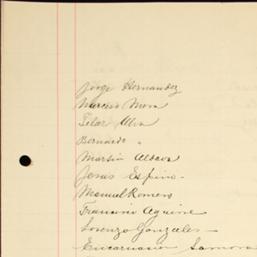 Jorge Hernandez
Narciso Mora
Pilar Alva
Bernardo "
Martin
Jesus Espino -
Manuel Romero
Francisco Aguirre
Lorenzo Gonzales -
Encarnacion Samora